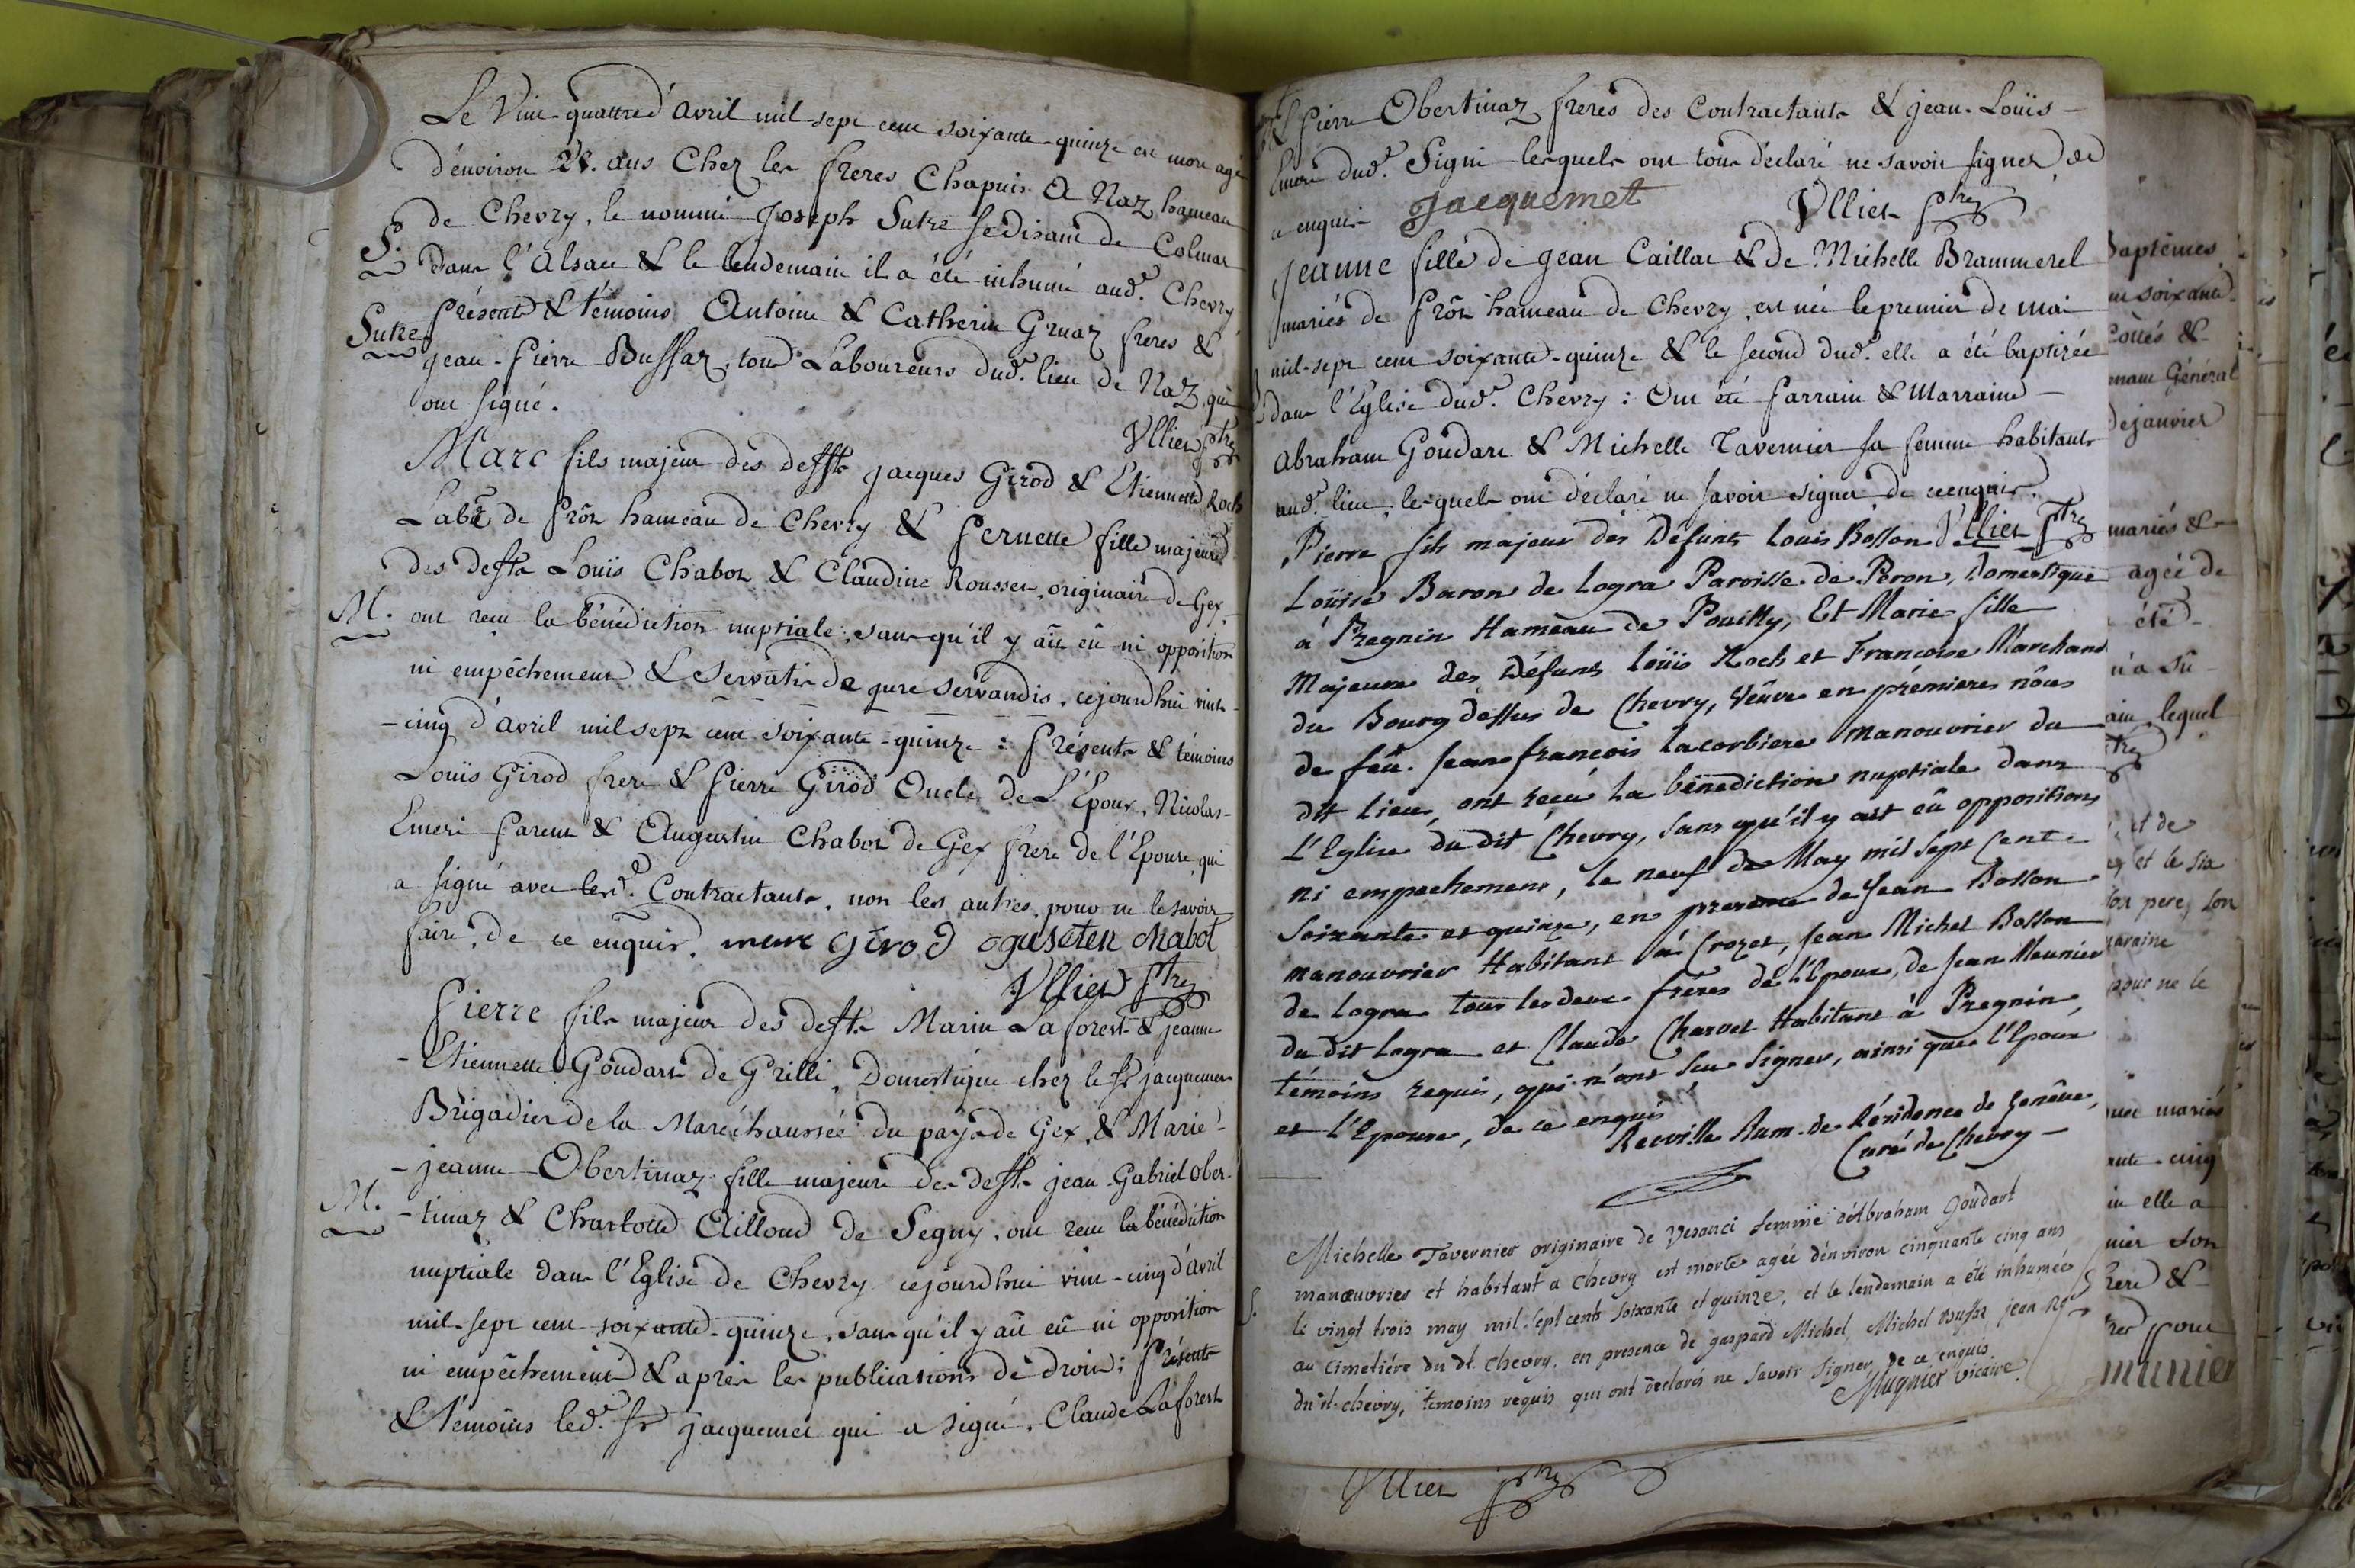 Le Vint-quattre d'avril mil-sept cent soixante-quinze est mort agé
d'environ 28. ans Chez les freres Chapuis a Naz hameau
de Chevry, le nommé Joseph Sutre se disant de Colmar
S.
dans l'Alsace & le lendemain il a été inhumé aud.t Chevry
Présents & témoins Antoine & Catherin Gruaz freres &
Sutre
jean-Pierre Bussaz, tous Laboureurs dud.t lieu de Naz, qui
ont signé.
Ulliet ptre
Marc fils majeur des deffts jacques Girod & Etiennette Roch
Labr. de Prôst hameau de Chevry & Pernette fille majeure
des deffts Louïs Chabot & Claudine Rousset, originaire de Gex,
M. ont recu la bénédiction nuptiale, sans qu'il y aït eû ni opposition
ni empêchement & servatis de jure servandis, cejourdhui vint-
-cinq d'avril mil sept cent soixante-quinze : Présents & témoins
Louïs Girod frere & Pierre Girod Oncle de L'Epoux, Nicolas-
Emeri Parent & Augustin Chabot de Gex frere de l'Epouse, qui
a signé avec lesd.t Contractants, non les autres, pour ne le savoir
faire, de ce enquis. marc Girod oguseten chabot
Ulliet ptre
Pierre fils majeur des deffts Marin Laforest & jeanne
-Etiennette Goudart de Grilli, Domestique chez le Sr jacquemet
Brigadier de la Maréchaussée du pays de Gex, & Marie-
-jeanne Obertinaz fille majeure des deffts jean-Gabriel Ober-
M.
-tinaz & Charlotte Ailloud de Segny, ont recu la bénédiction
nuptiale dans l'Eglise de Chevry cejourdhui vint-cinq d'avril
mil-sept cent soixante-quinze, sans qu'il y aït eû ni opposition
ni empêchement & après les publications de droit; Présents
& témoins led.t Sr jacquemet qui a signé, Claude Laforest
& Pierre Obertinaz freres des Contractants & jean-Louïs-
Emeri dud.t Segni lesquels ont tous déclaré ne savoir signer, de
ce enquis jacquemet Ulliet ptre
jeanne fille de jean Caillat & de Michelle Brammerel
mariés de Prôst hameau de Chevry, est née le premier de mai
mil-sept cent soixante-quinze & le second dud.t elle a été baptizée
dans l'Eglise dud.t Chevry : Ont été Parrain & Marraine
abraham Goudart & Michelle Tavernier sa femme habitants
aud.t lieu, lesquels ont déclaré ne savoir signer de ce enquis.
Ulliet ptre
Pierre fils majeur des Défunts Louis Bosson &
Loüise Baron de Logra Paroisse de Peron, Domestique
à Pregnin Hameau de Pouilly, Et Marie fille
Majeure des Défunts loüis Roch et Francoise Marchand
du Bourg dessus de Chevry, Veüve en prémieres nôces
de feû Jean francois lacorbiere Manouvrier du
dit lieu, ont reçû la bénédiction nuptiale dans
L'Eglise du dit Chevry, sans qu'il y ait eû opposition,
ni empechement, le neuf de May mil sept Cent-
Soixante et quinze, en presence de Jean Bosson
manouvrier Habitant à Crozet, Jean Michel Bosson
de logra tous les deux fréres de l'Epoux, de Jean Meunier
du dit Logra et Claude Charvet Habitant à Pregnin,
témoins requis, qui n'ont sçu signer, ainsi que l'Epoux
et l'Epouse, de ce enquis
Reuville Aum. de Résidence de Genêve,
Curé de Chevry
Michelle Tavernier originaire de Vesanci femme d'Abraham Goudart
manœuvrier et habitant a Chevry est morte agée d'environ cinquante cinq ans
S.
le vingt trois may mil-sept cents soixante et quinze, et le lendemain a été inhumée
au cimetiére du dt. Chevry. en presence de gaspard Michel, Michel Bussaz jean
du d. chevry, temoins requis qui ont declarés ne savoir signer, de ce enquis
Mugnier vicaire.
Ulliet ptre
Baptêmes
soixante-
Cottés &
Général
de janvier
mariés &
agée de
été
n'a sû
lequel
ptre
, et de
et le six
pere, son
maraine
pour ne le
mariés
cinq
elle a
son
frere &
pour
munier